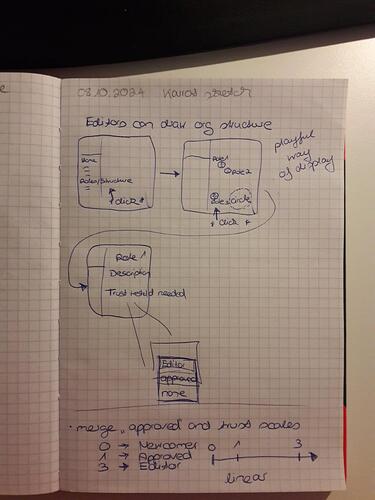 08.10.2024
Editors can draw org structure
Home
Roles/Structure
* click *
Role1
Role2
circle
* click *
playful
way
of display
Role 1
Description
Trust needed
Editor
approved
none
· merge „approved and trust scales
0 → Newcomer
1 → Approved
3 → Editor
0 1 3
linear